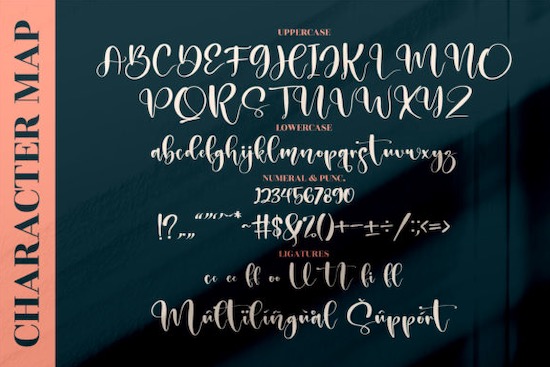 CHARACTER MAP
UPPERCASE
ABCDEFGHIJKLMNO
PQRSTUVWXYZ
LOWERCASE
abcdefghijklmnopqrstuvwxyz
NUMERAL & PUNC.
1234567890
!?.,„“”‘’~* ~#$&%()+−-±÷/:;<=>
LIGATURES
cc ee ll oo tt fi ff
Mûltïlíñgùàl Šûppórt